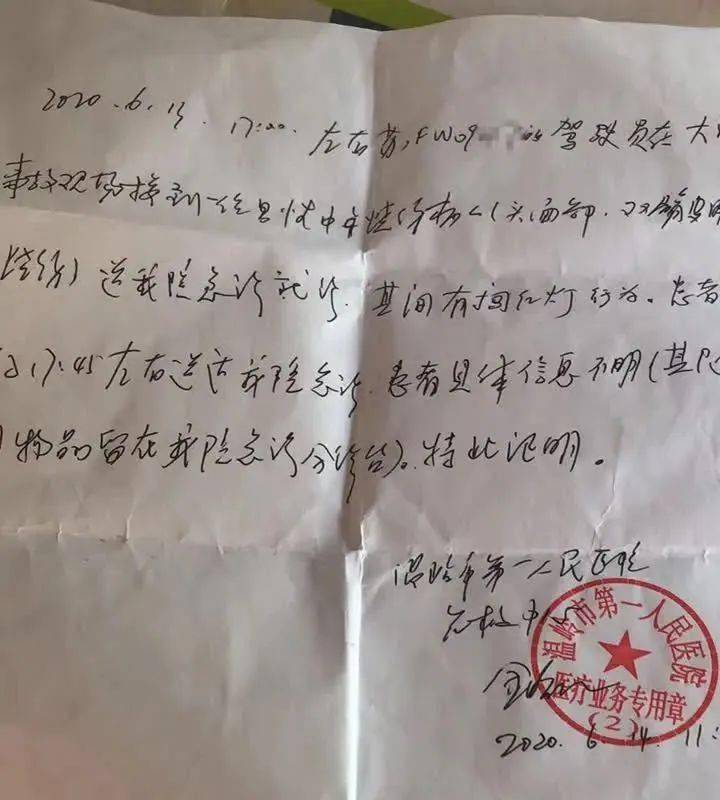 2020.6.13. 17:00 左右 苏FW09 的驾驶员在大
事故现场接到一位昏忱中年烧伤病人(头面部,双
烧伤)送我院急诊就诊.其间有闯红灯行为。患者
17:45左右送达我院急诊.患者具体信息不明(其
物品留在我院急诊分诊台)。特此证明。
温岭市第一人民医院
急救中心
温岭市第一人民医院
医疗业务专用章
(2)
2020.6.14 11: